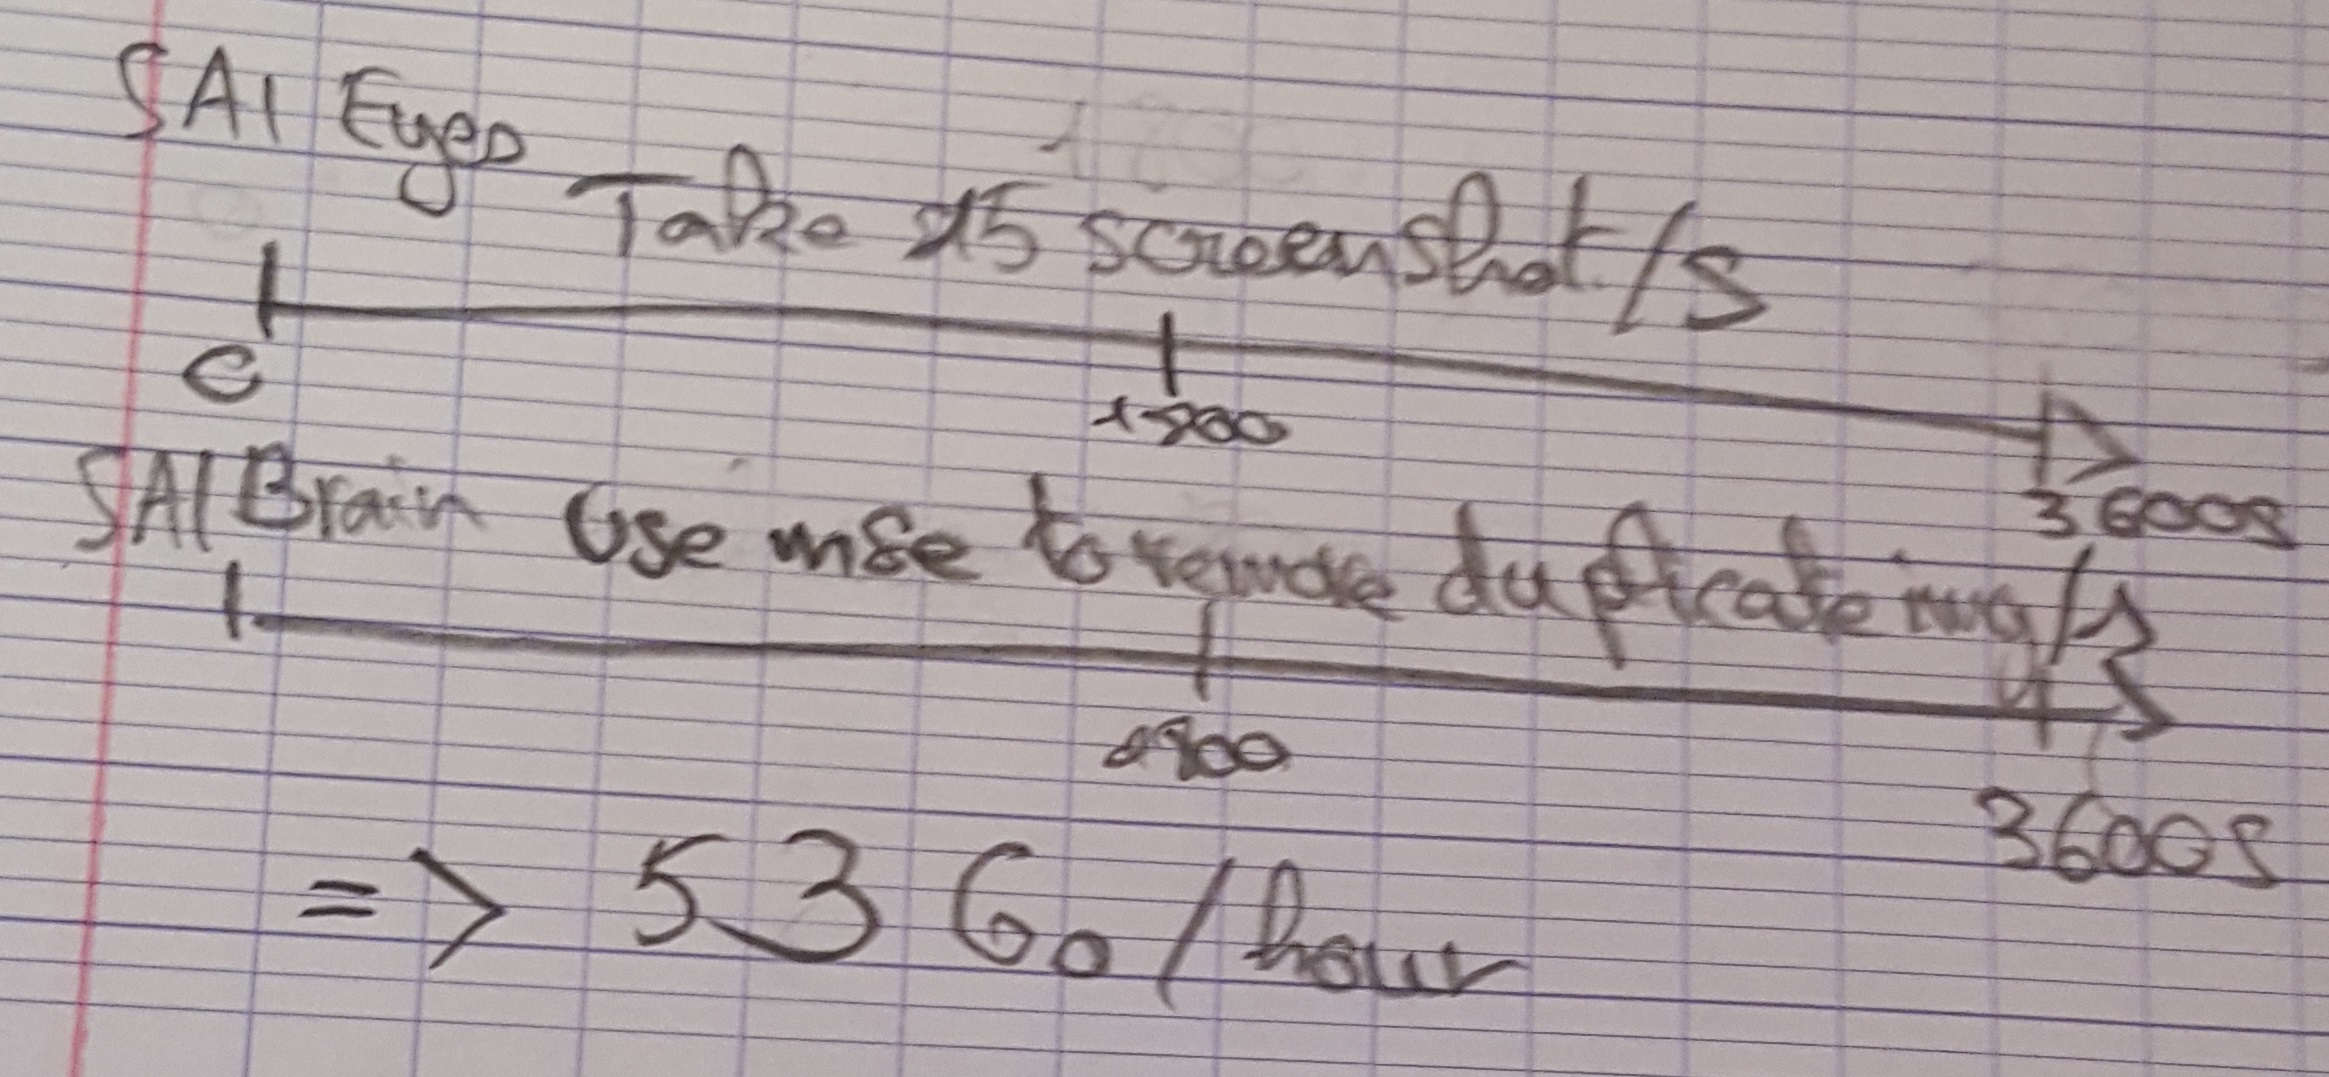 SAI Eyes
Take 15 screenshot/s
0
1800
3600s
SAI Brain Use mse to remove duplicate img/s
1800
3600s
=> 53 Go/hour